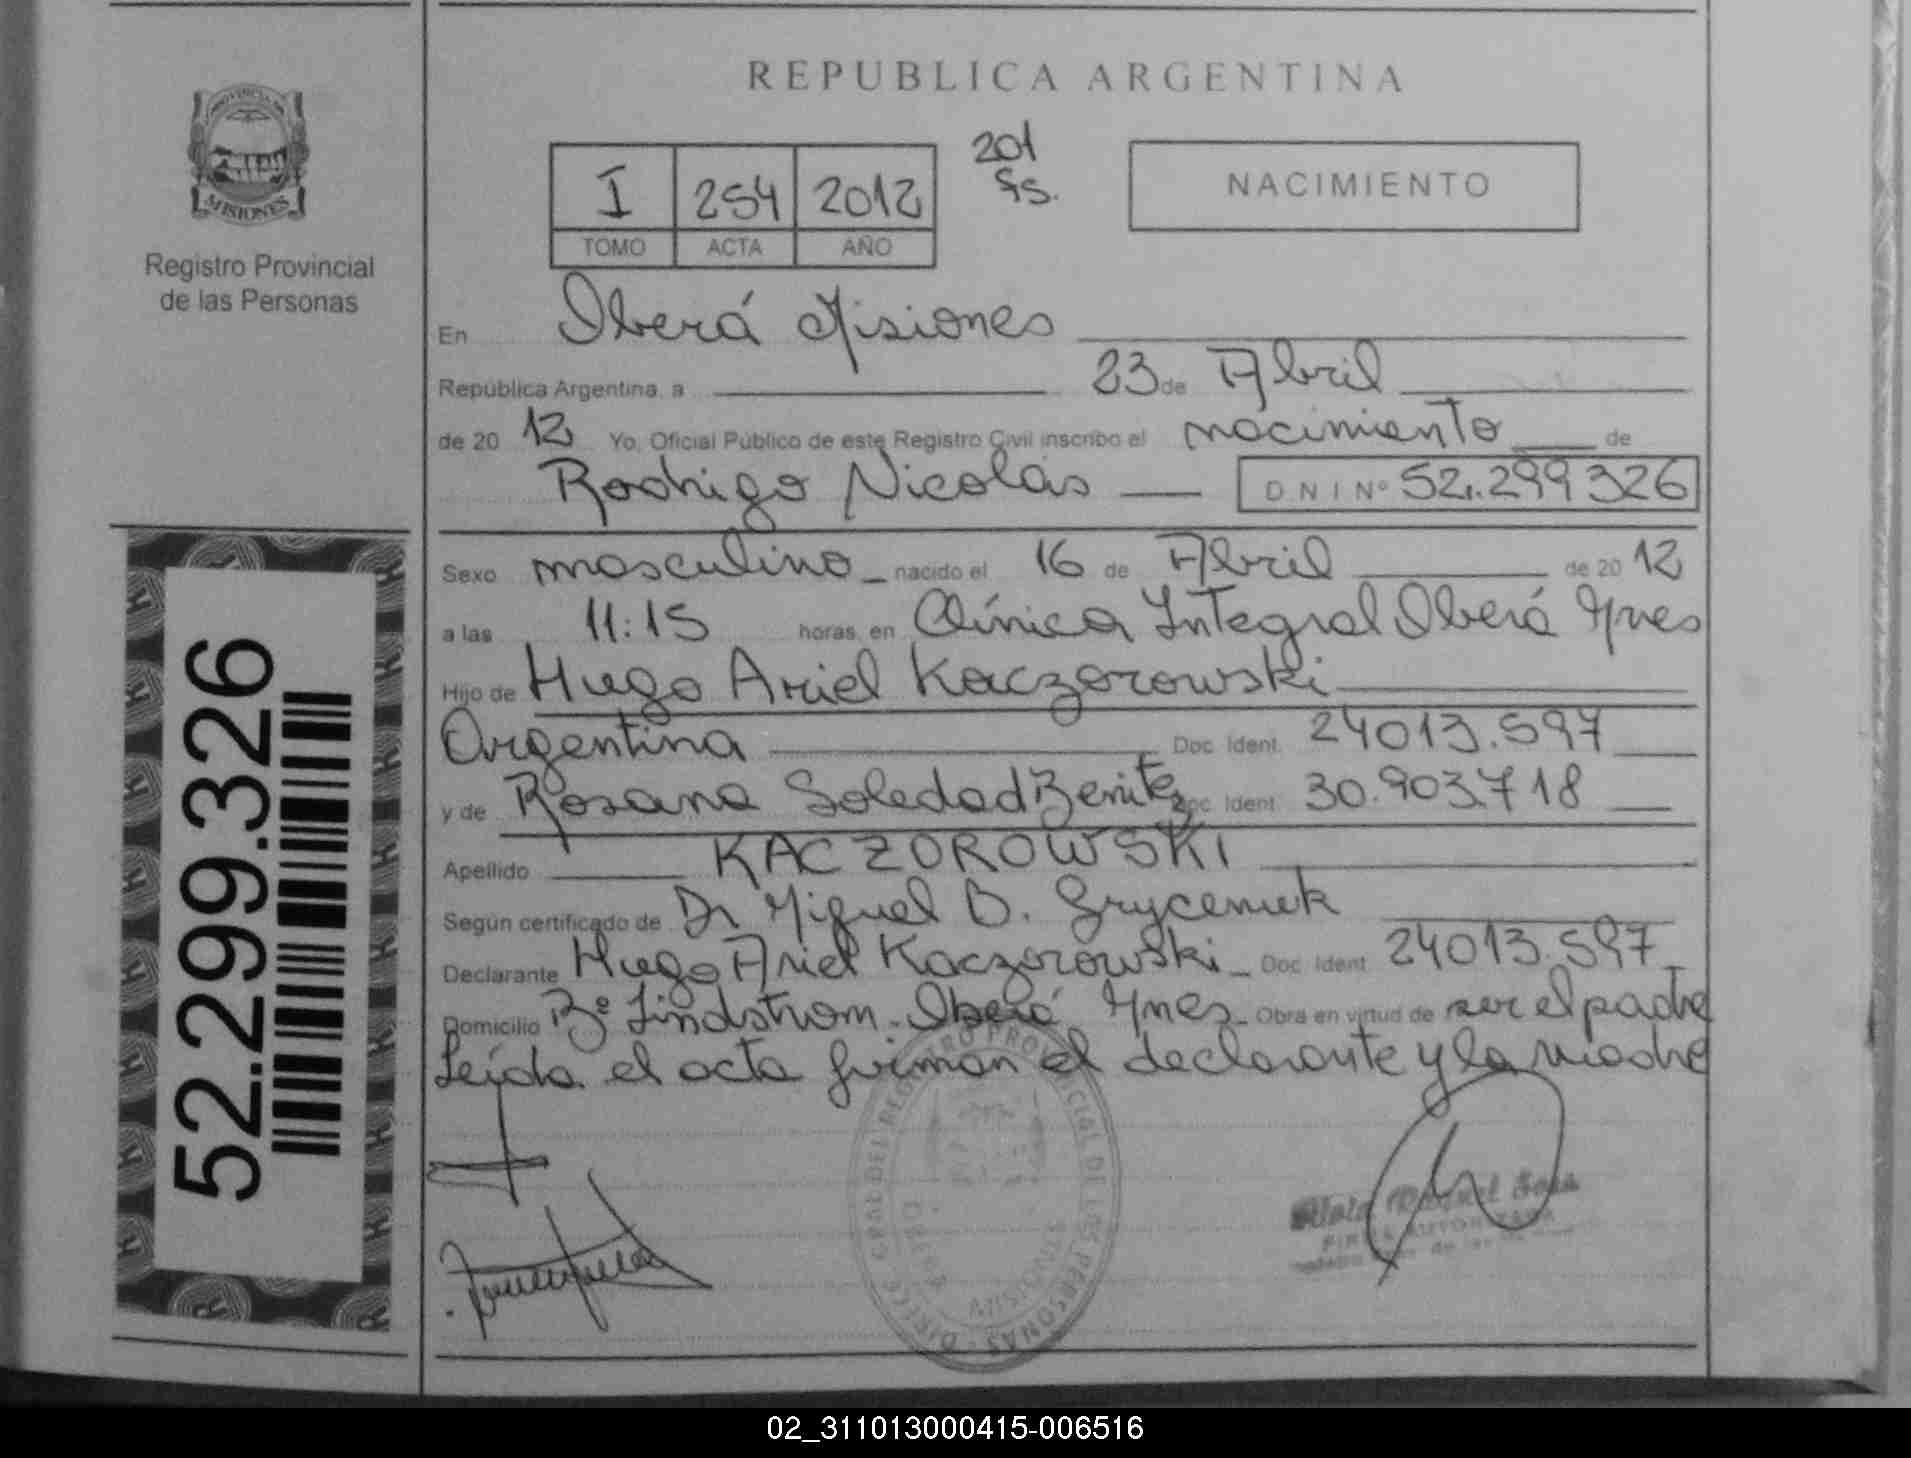 PROVINCIA DE
MISIONES
Registro Provincial
de las Personas
52.299.326
REPUBLICA ARGENTINA
I 254 2012
TOMO ACTA AÑO
201
fs.
NACIMIENTO
En Oberá Misiones
República Argentina, a 23 de Abril
de 2012 Yo, Oficial Público de este Registro Civil inscribo el nacimiento de
Rodrigo Nicolás DNI Nº 52.299326
Sexo masculino nacido el 16 de Abril de 2012
a las 11:15 horas, en Clínica Integral Oberá Mnes
Hijo de Hugo Ariel Kaczorowski
Argentina Doc. Ident. 24013.597
y de Rosana Soledad Benitez Doc. Ident. 30.903.718
Apellido KACZOROWSKI
Según certificado de Dr Miguel B.
Declarante Hugo Ariel Kaczorowski Doc. Ident. 24013.597
Domicilio Bº Lindstrom. Oberá Mnes. Obra en virtud de ser el padre
Leída el acta firman el declarante y la madre
REGISTRO PROVINCIAL DE LAS PERSONAS
OBERA
MISIONES
02_311013000415-006516